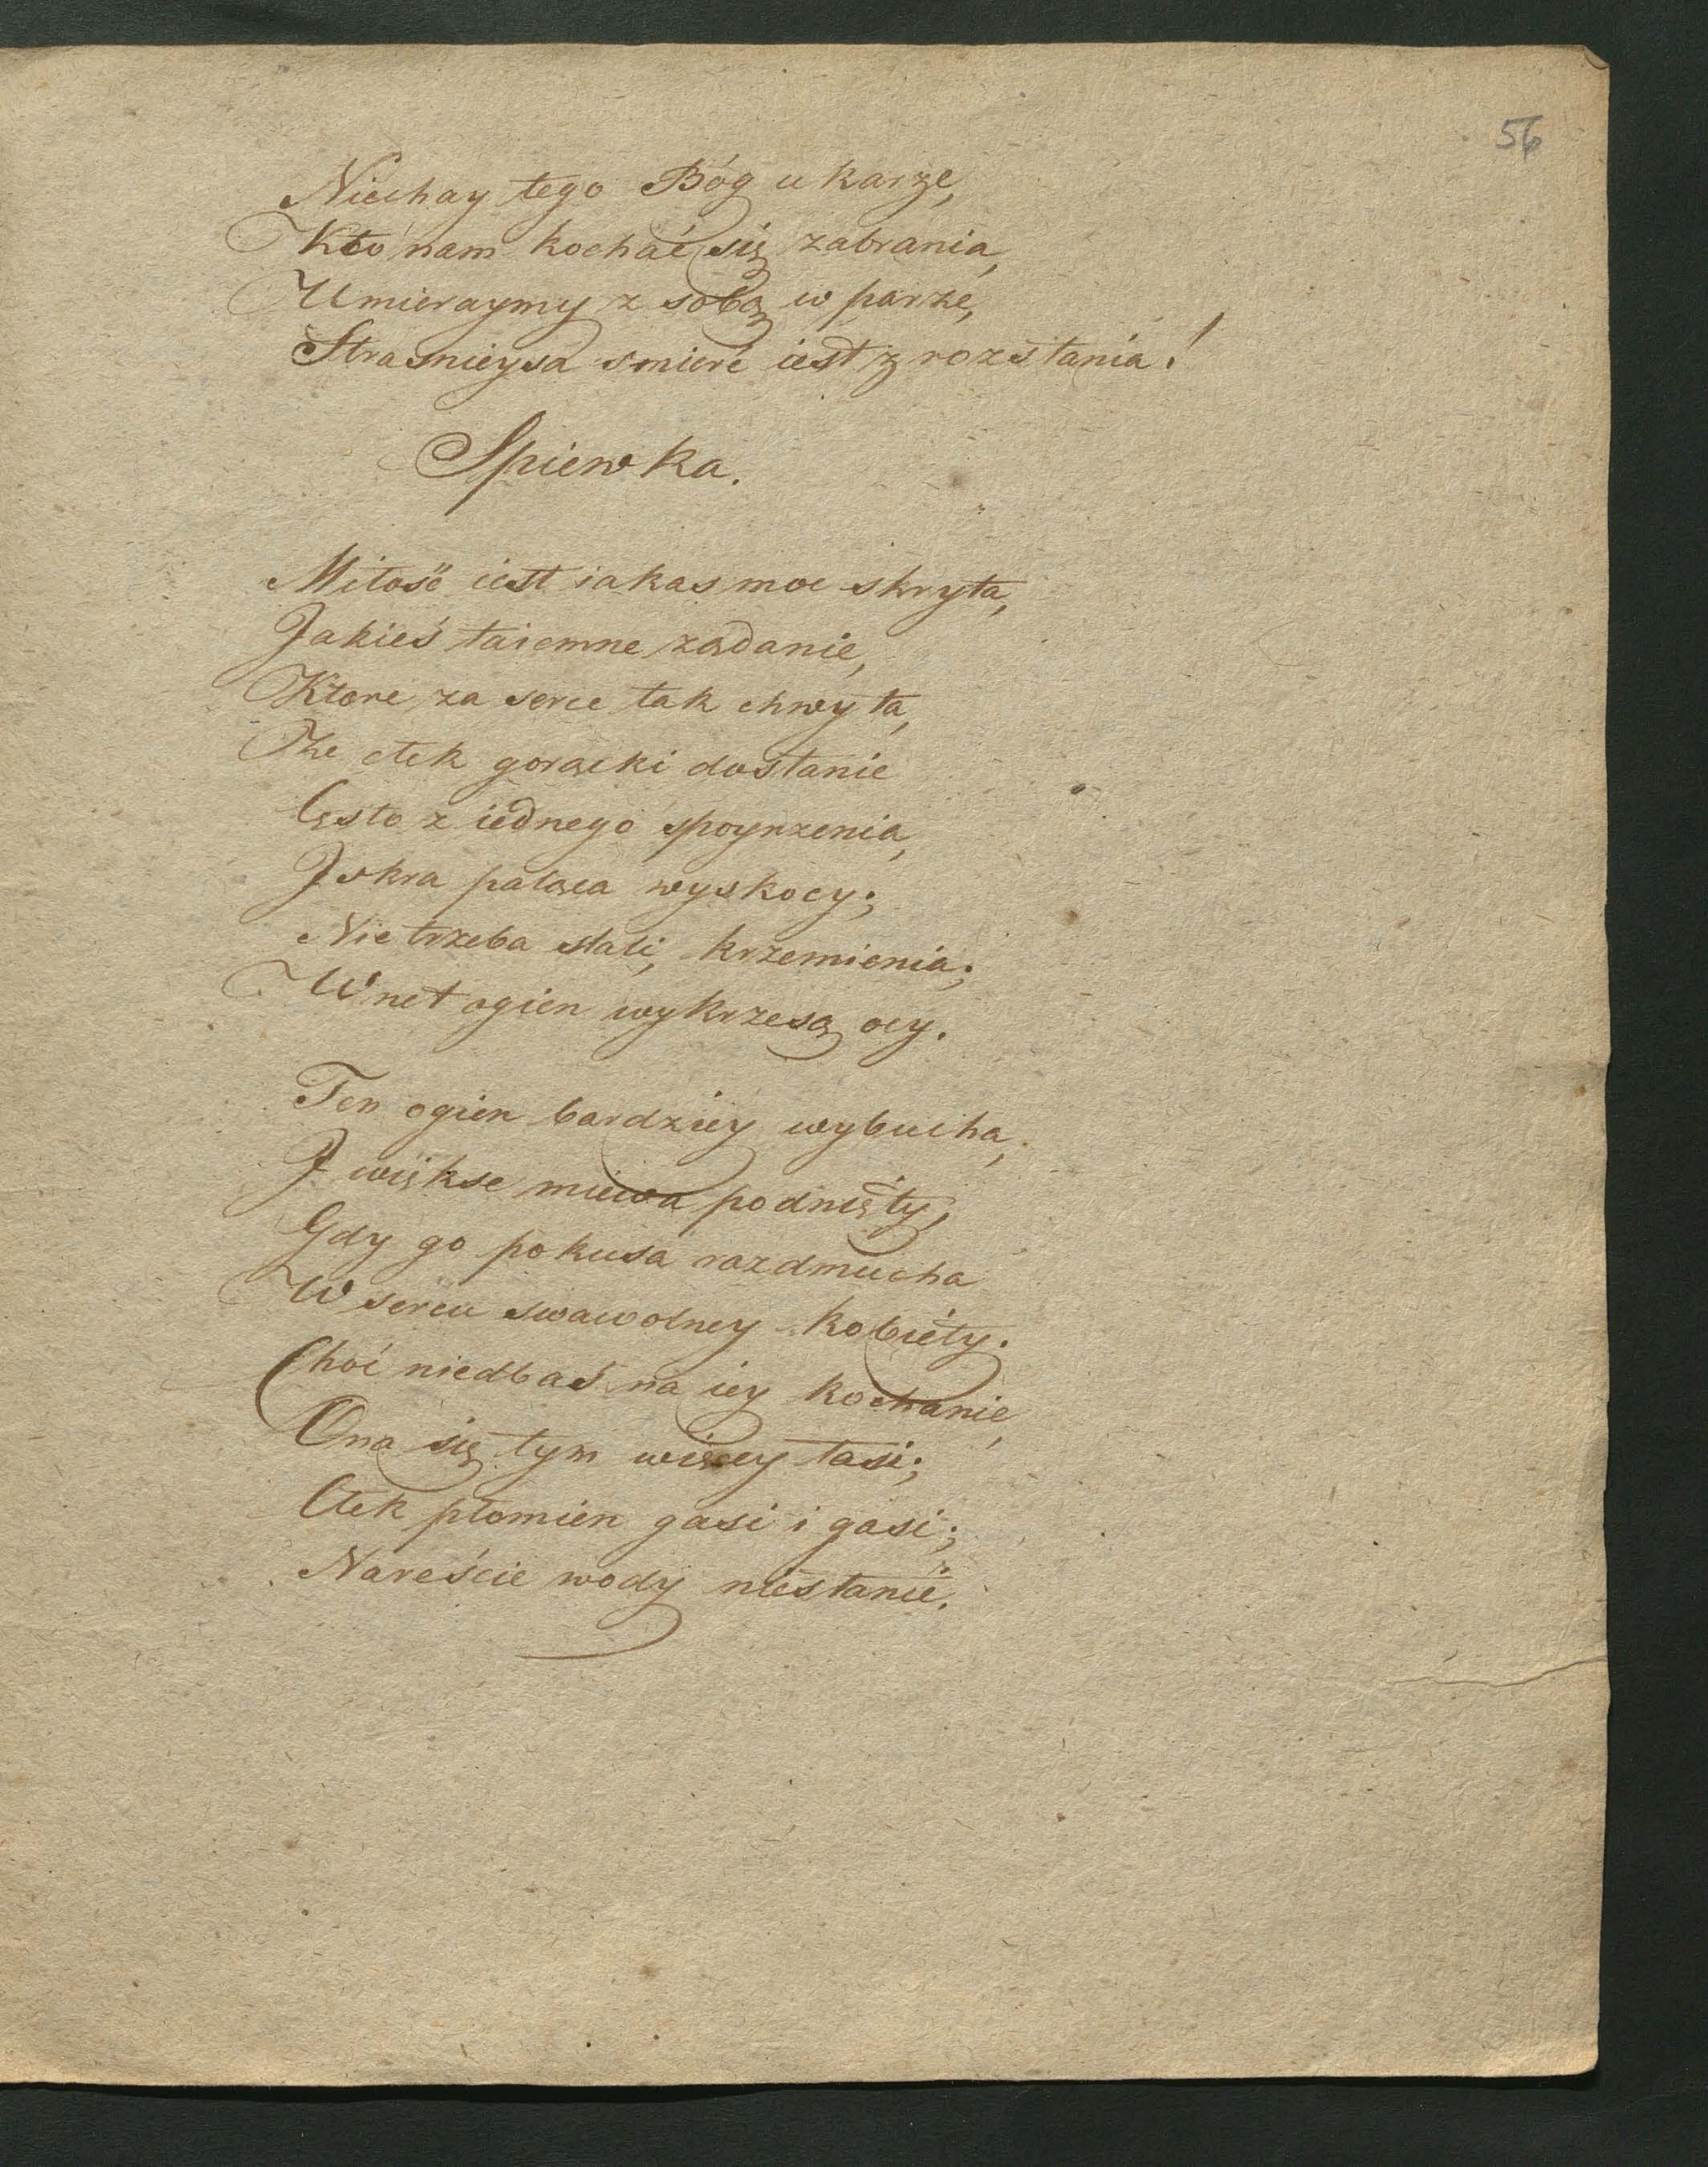 56
Niechay tego Bóg ukarze,
Kto nam kochać się zabrania,
Umieraymy z sobą w parze,
Strasnieysa smierć iest z rozstania!
Spiewka.
Miłość iest iakas moc skryta,
Jakieś taiemne ządanie,
Ktore za serce tak chwyta,
Ze ctek gorącki dostanie
Cęsto z iednego spoyrzenia,
Jskra pałąca wyskocy;
Nie trzeba stali, krzemienia;
Wnet ogien wykrzesą ocy.
Ten ogien bardziey wybucha,
J więkse miewa podniéty,
Gdy go pokusa rozdmucha
W sercu swawolney kobiéty.
Choć niedbas na iey kochanie,
Ona się tym więcey łasi;
Ctek płomien gasi i gasi;
Nareście wody niestanie.